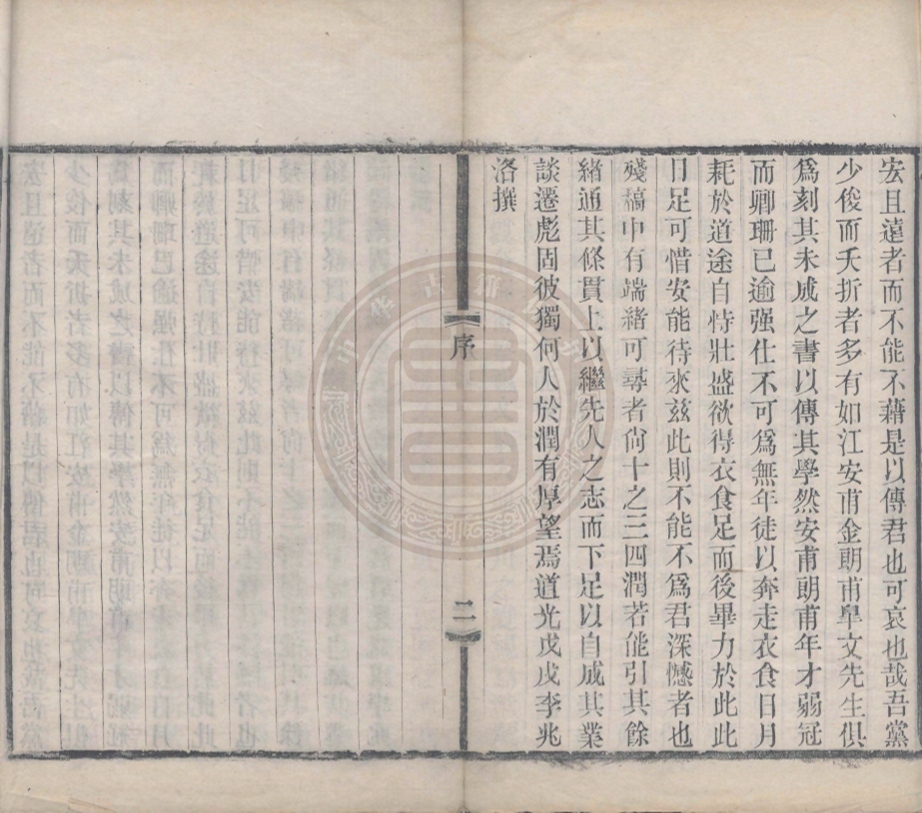 宏且遠者而不能不藉是以傳君也可哀也哉吾黨
少俊而夭折者多有如江安甫金朗甫臯文先生俱
爲刻其未成之書以傳其學然安甫朗甫年才弱冠
而卿珊已逾强仕不可爲無年徒以奔走衣食日月
耗於道途自恃壯盛欲得衣食足而後畢力於此此
日足可惜安能待來兹此則不能不爲君深憾者也
殘稿中有端緒可尋者尙十之三四潤若能引其餘
緒通其條貫上以繼先人之志而下足以自成其業
談遷彪固彼獨何人於潤有厚望焉道光戊戌李兆
洛撰
序
二